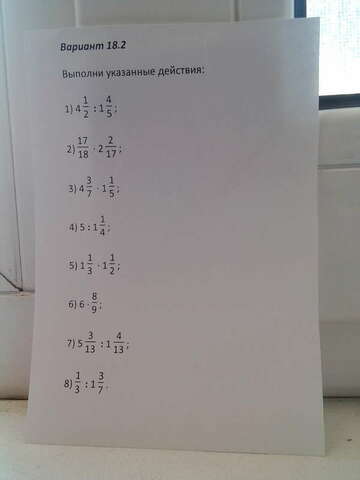 Вариант 18.2
Выполни указанные действия:
1) 4 1/2 : 1 4/5;
2) 17/18 · 2 2/17;
3) 4 3/7 · 1 1/5;
4) 5 : 1 1/4;
5) 1 1/3 · 1 1/2;
6) 6 · 8/9;
7) 5 3/13 : 1 4/13;
8) 1/3 : 1 3/7.